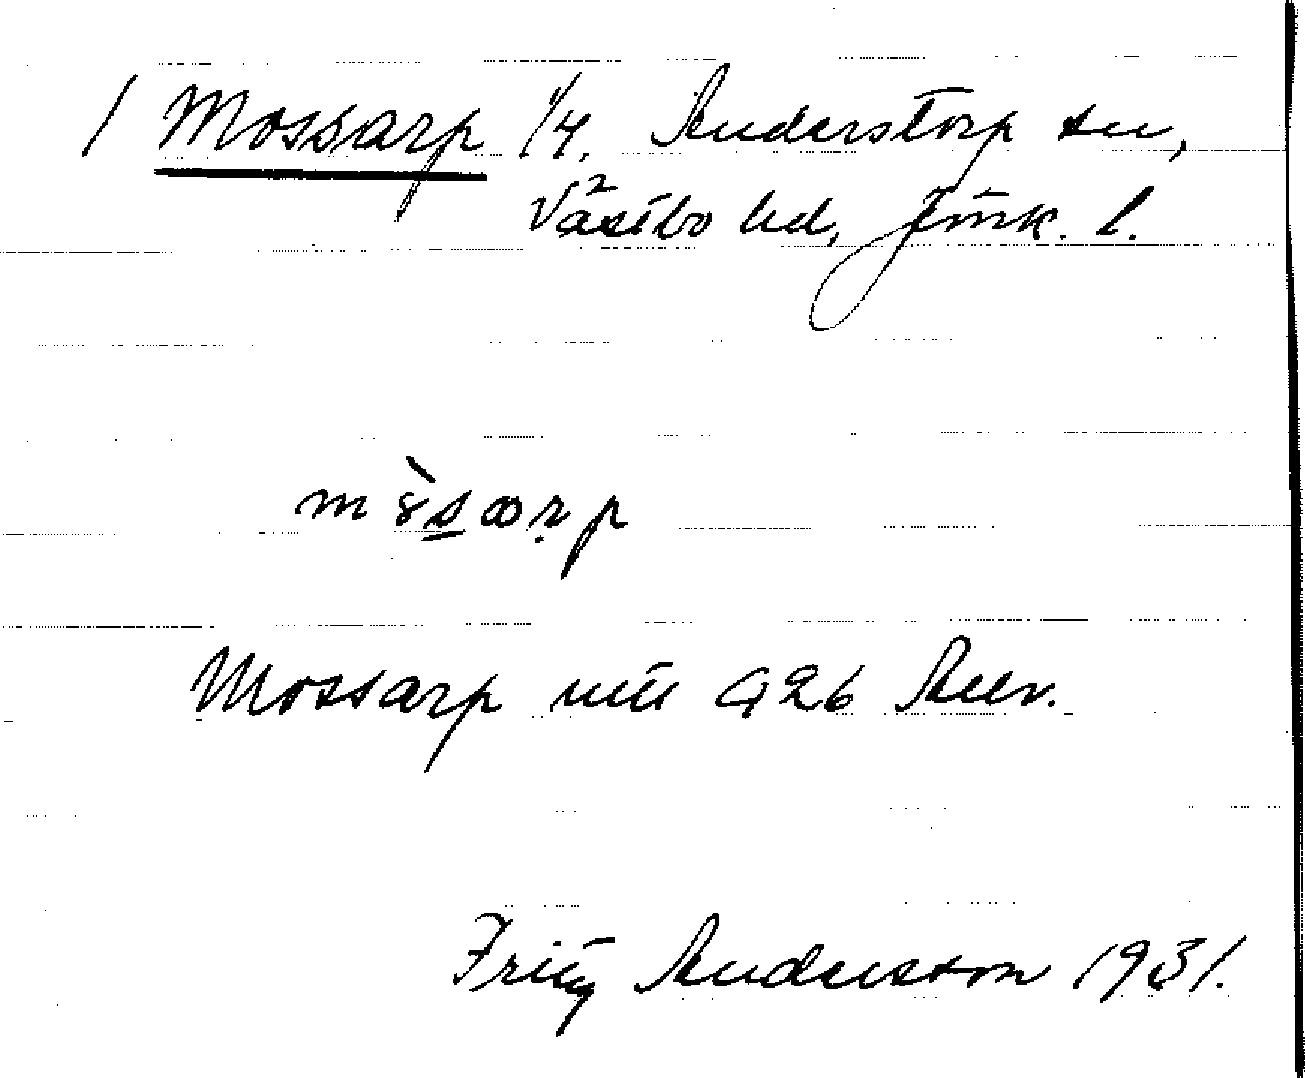 / Mossarp 1/4. Anderstorp sn,
Västbo hd, Jönk. l.
Mossarp 926
Fritz Andersson 1931.